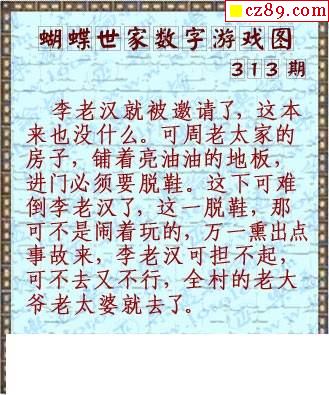 cz89.com
蝴蝶世家数字游戏图
313期
李老汉就被邀请了，这本
来也没什么。可周老太家的
房子，铺着亮油油的地板，
进门必须要脱鞋。这下可难
倒李老汉了，这一脱鞋，那
可不是闹着玩的，万一熏出点
事故来，李老汉可担不起，
可不去又不行，全村的老大
爷老太婆就去了。